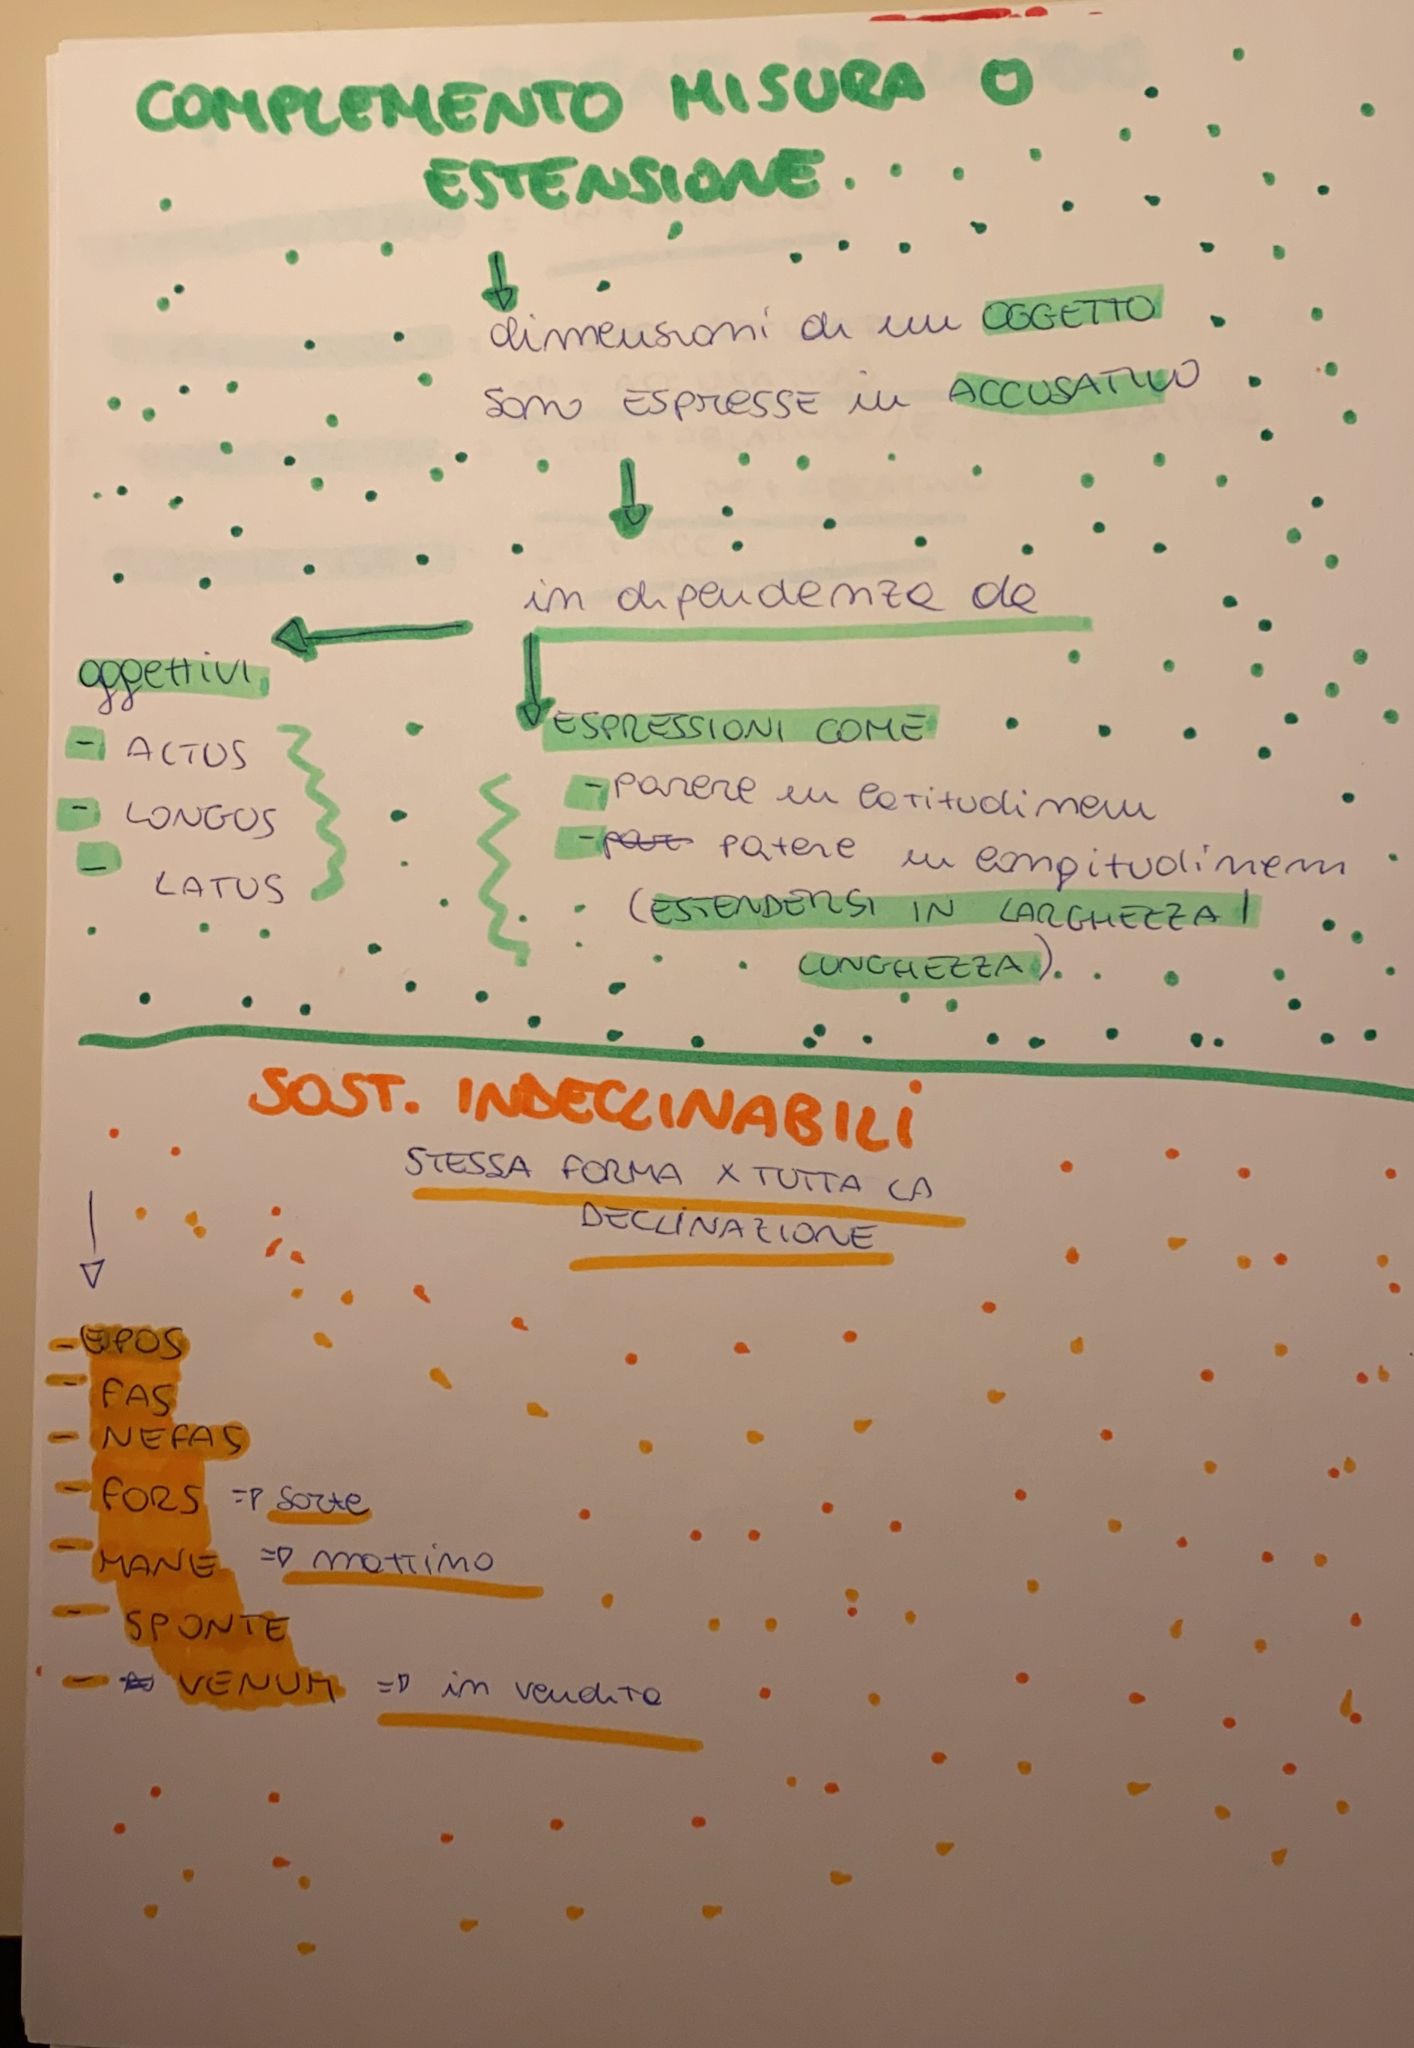 COMPLEMENTO MISURA O
ESTENSIONE
dimensioni di un OGGETTO
sono ESPRESSE in ACCUSATIVO
in dipendenza da
aggettivi
- ACTUS
- LONGUS
- LATUS
ESPRESSIONI COME
- parere in latitudinem
- patere in longitudinem
(ESTENDERSI IN LARGHEZZA /
LUNGHEZZA)
SOST. INDECLINABILI
STESSA FORMA X TUTTA LA
DECLINAZIONE
- EPOS
- FAS
- NEFAS
- FORS => sorte
- MANE => mattino
- SPONTE
- VENUM => in vendita